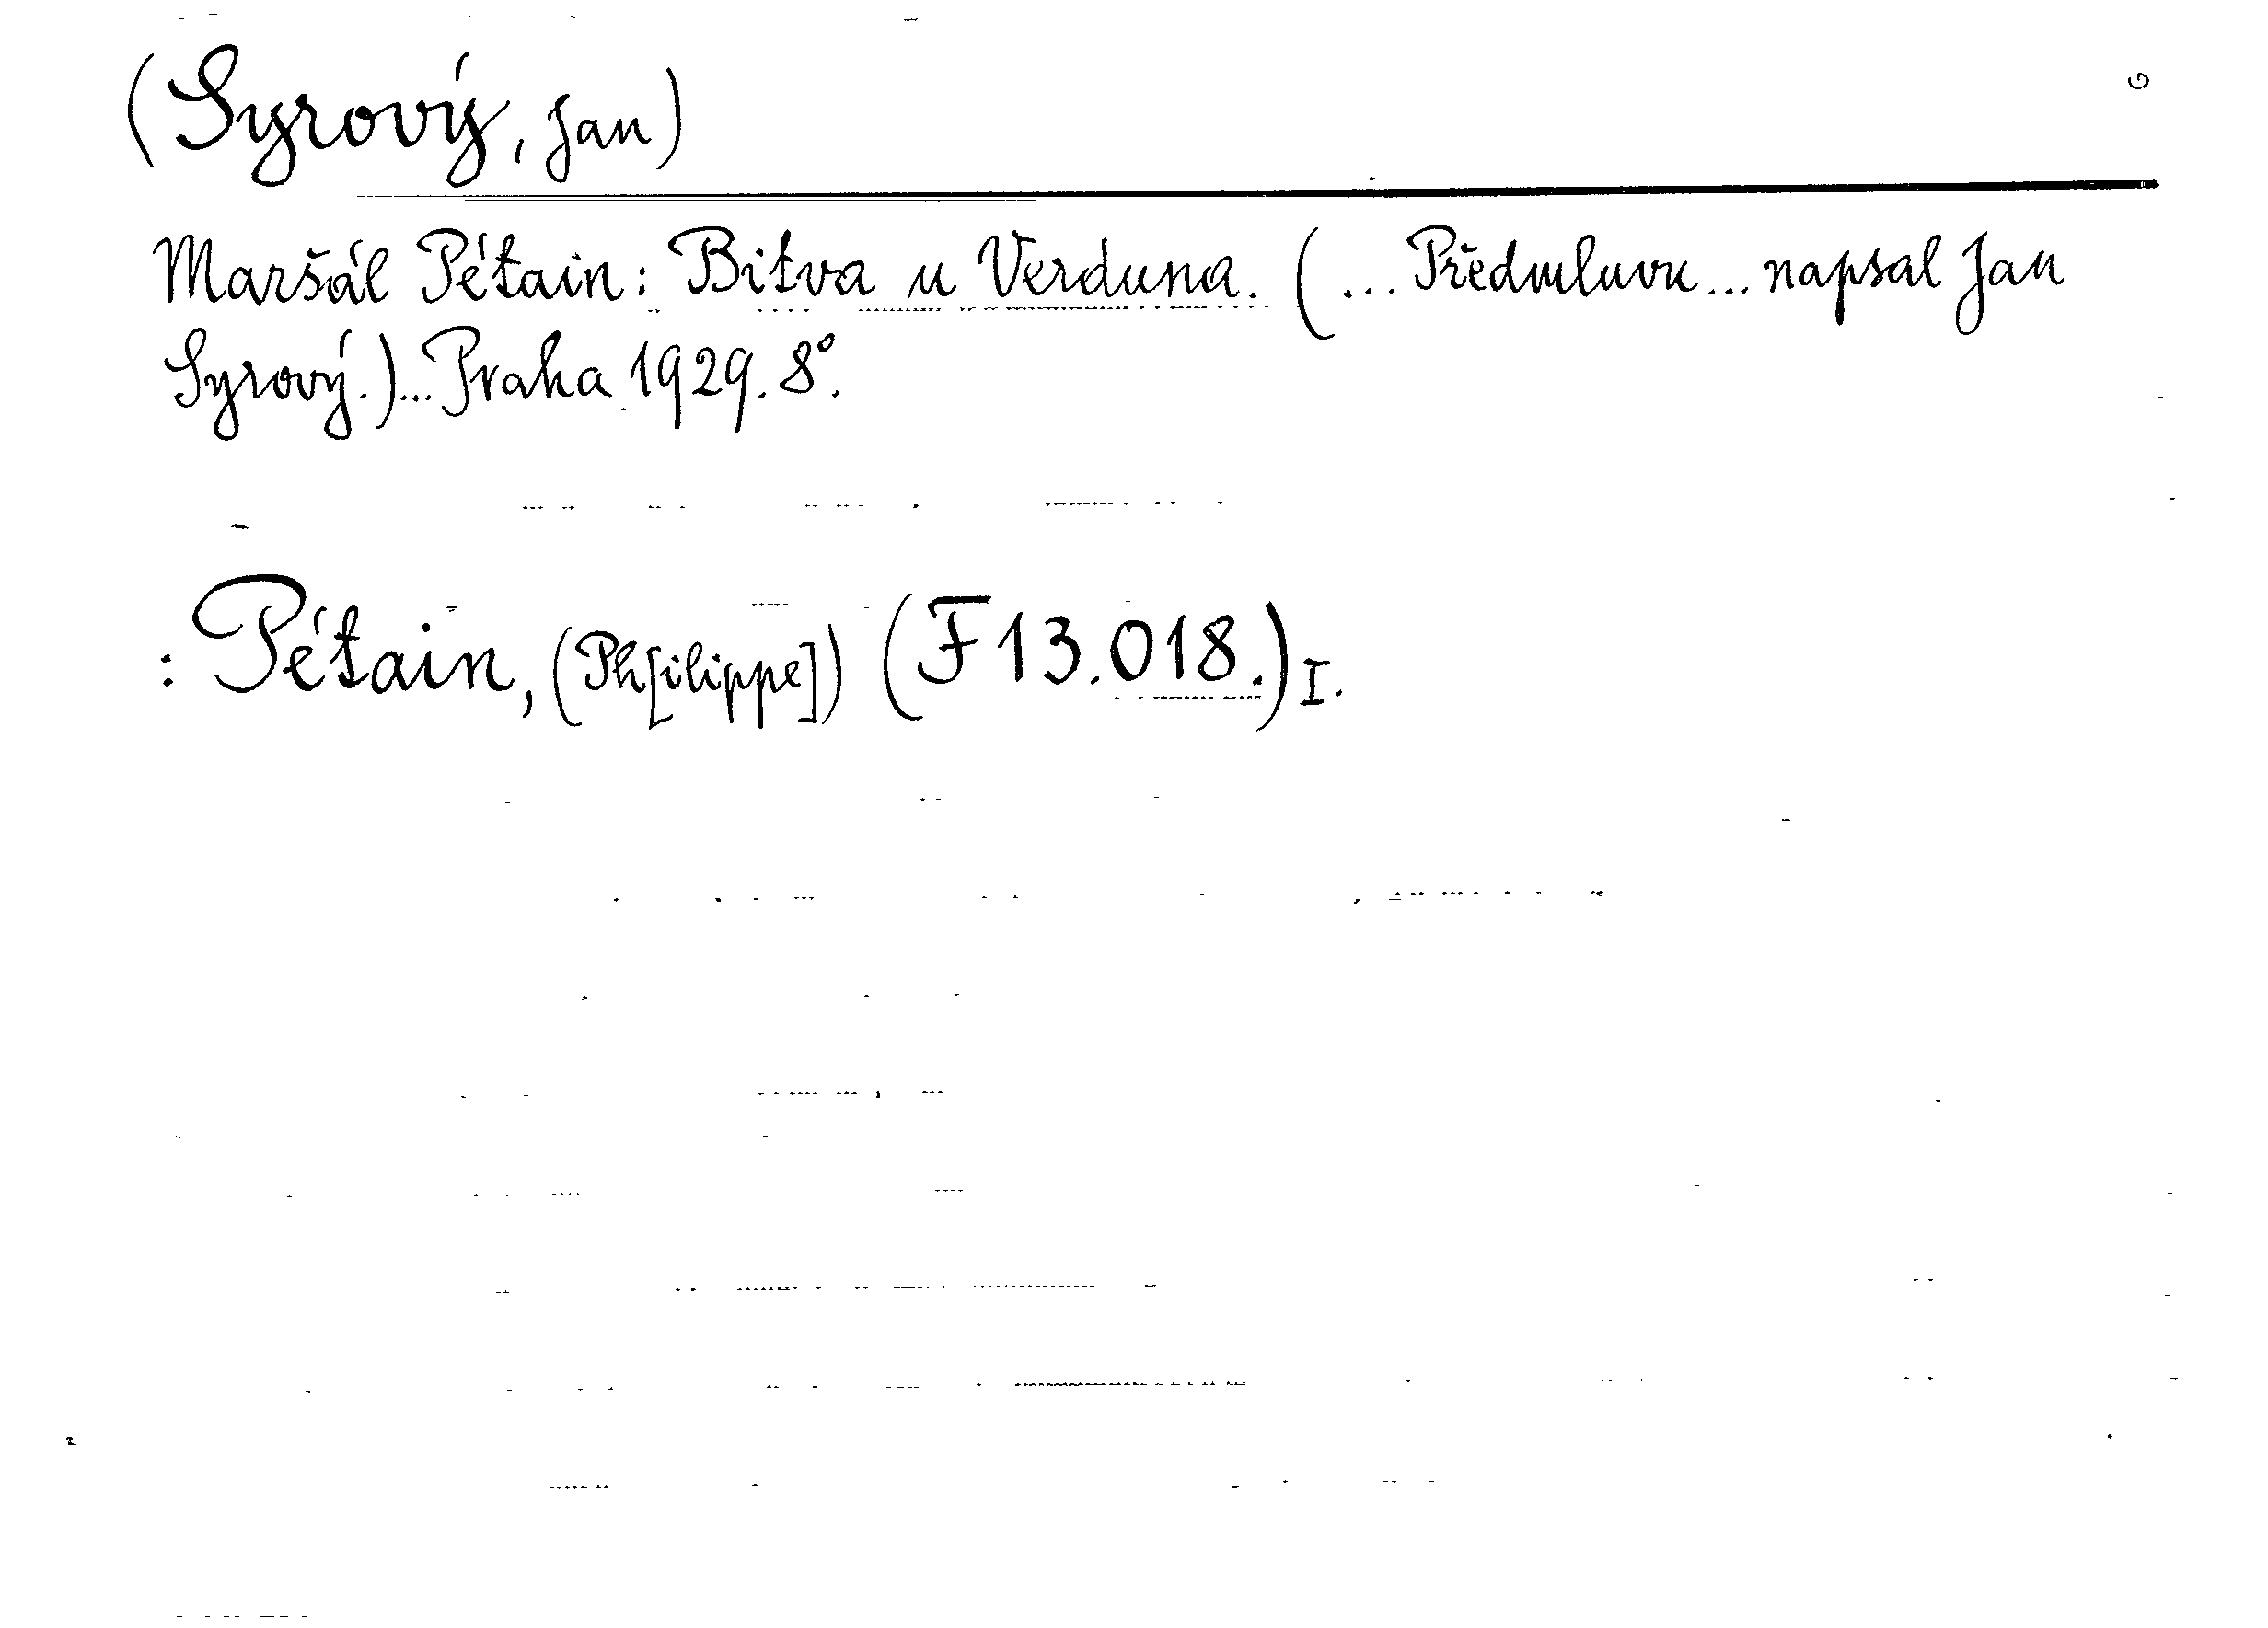 (Syrový, Jan)
Maršál Pétain: Bitva u Verduna. (... Předmluvu ... napsal Jan
Syrový.)... Praha 1929. 8°.
: Pétain, (Ph[ilippe]) (F 13.018.) I.